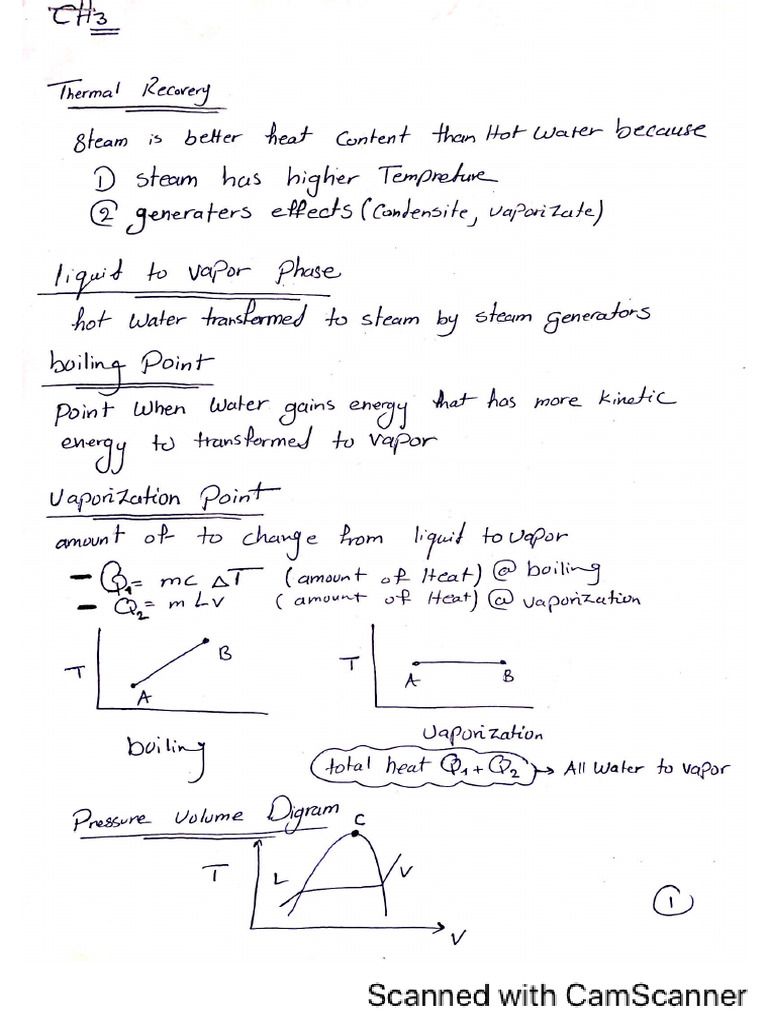 CH3
Thermal Recovery
Steam is better heat Content than Hot Water because
1) steam has higher Tempreture
2 generaters effects (Condensite, vaporizate)
liquid to vapor Phase
hot Water transformed to steam by steam generators
boiling Point
Point When Water gains energy that has more kinetic
energy to transformed to vapor
Vaporization Point
amount of to change from liquid to vapor
- Q1 = mc ΔT (amount of Heat) @ boiling
- Q2 = m Lv (amount of Heat) @ vaporization
T A B
T A B
boiling
Vaporization
total heat Q1 + Q2 → All Water to vapor
Pressure Volume Digram
C
T L V
V
1
Scanned with CamScanner